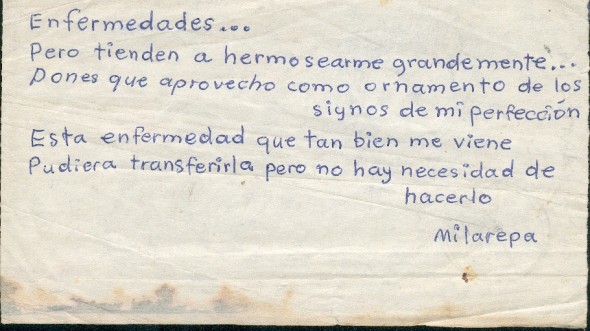 Enfermedades...
Pero tienden a hermosearme grandemente...
Dones que aprovecho como ornamento de los
signos de mi perfección
Esta enfermedad que tan bien me viene
Pudiera transferirla pero no hay necesidad de
hacerlo
Milarepa